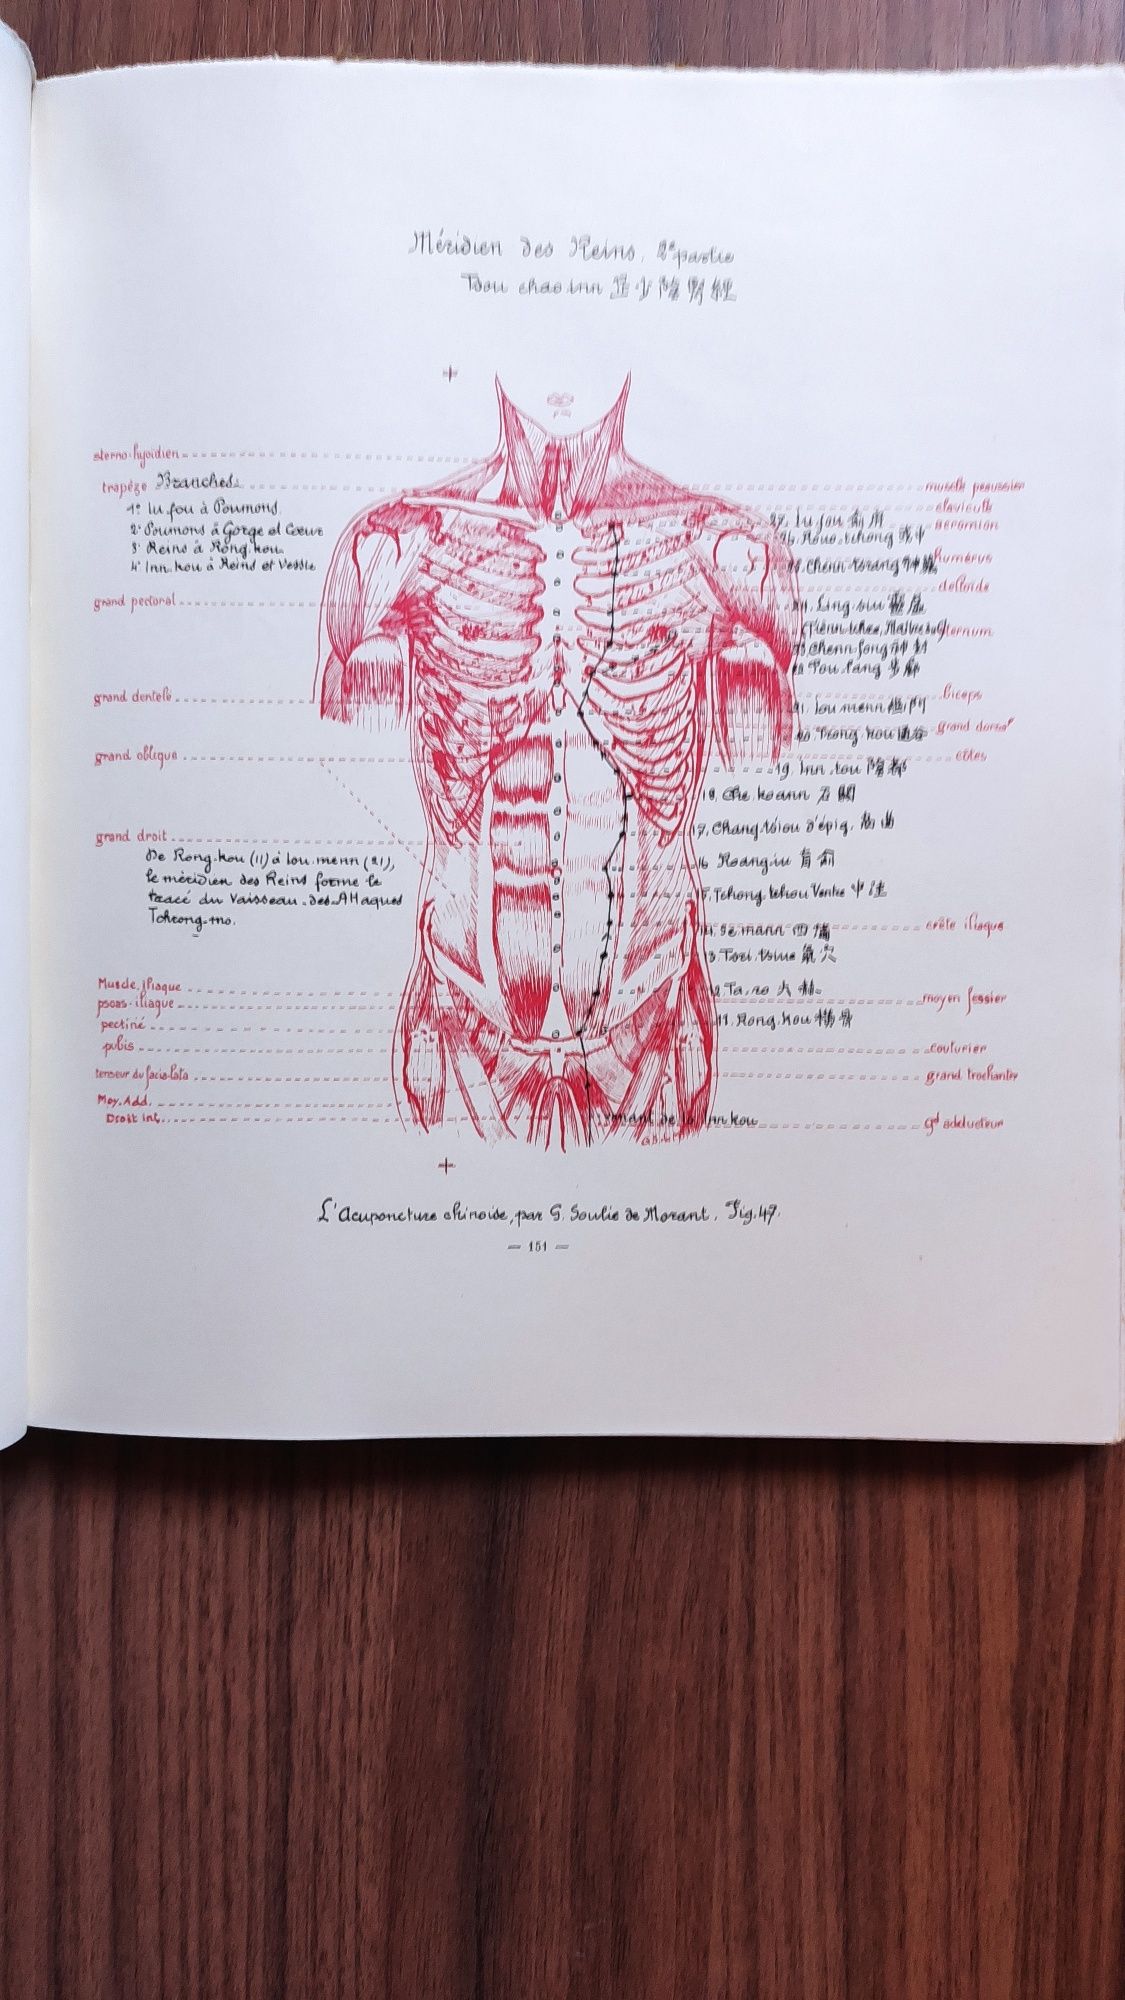 Méridien des Reins, 2e partie
Tsou chao inn 足少陰腎經
sterno-hyoidien
trapéze
Branches.
1° Iu.fou à Poumons.
2° Poumons à Gorge et Cœur
3° Reins à Rong.kou
4° Inn.kou à Reins et Vessie
grand pectoral
grand dentelé
grand oblique
grand droit
De Rong.kou (11) à Iou.menn (21),
le méridien des Reins forme le
tracé du Vaisseau-des-Attaques
Tchrong-mo.
Muscle iliaque
psoas-iliaque
pectiné
pubis
tenseur du facia-lata
Moy. Add.
Droit int.
muscle peaussier
clavicule
acromion
27. Iu fou 俞府
26. tchong 中
humérus
25. Chenn tsrang 神藏
deltoïde
24. Ling siu 靈墟
sternum
23. Chenn fong 神封
22. Pou lang 步廊
biceps
21. Iou menn 幽門
grand dorsal
20. Trong kou 通谷
côtes
19. Inn tou 陰都
18. Che koann 石關
17. Chang tsiou d'épig. 曲
16. Roang iu 肓俞
15. Tchong tchou Ventre 中注
crête iliaque
14. Se mann 四滿
13. Tsri tsiue 氣穴
12. Ta ro 大赫
moyen fessier
11. Rong kou 橫骨
couturier
grand trochanter
Inn kou
gd adducteur
L'Acuponcture chinoise, par G. Soulié de Morant. Fig. 47.
— 151 —